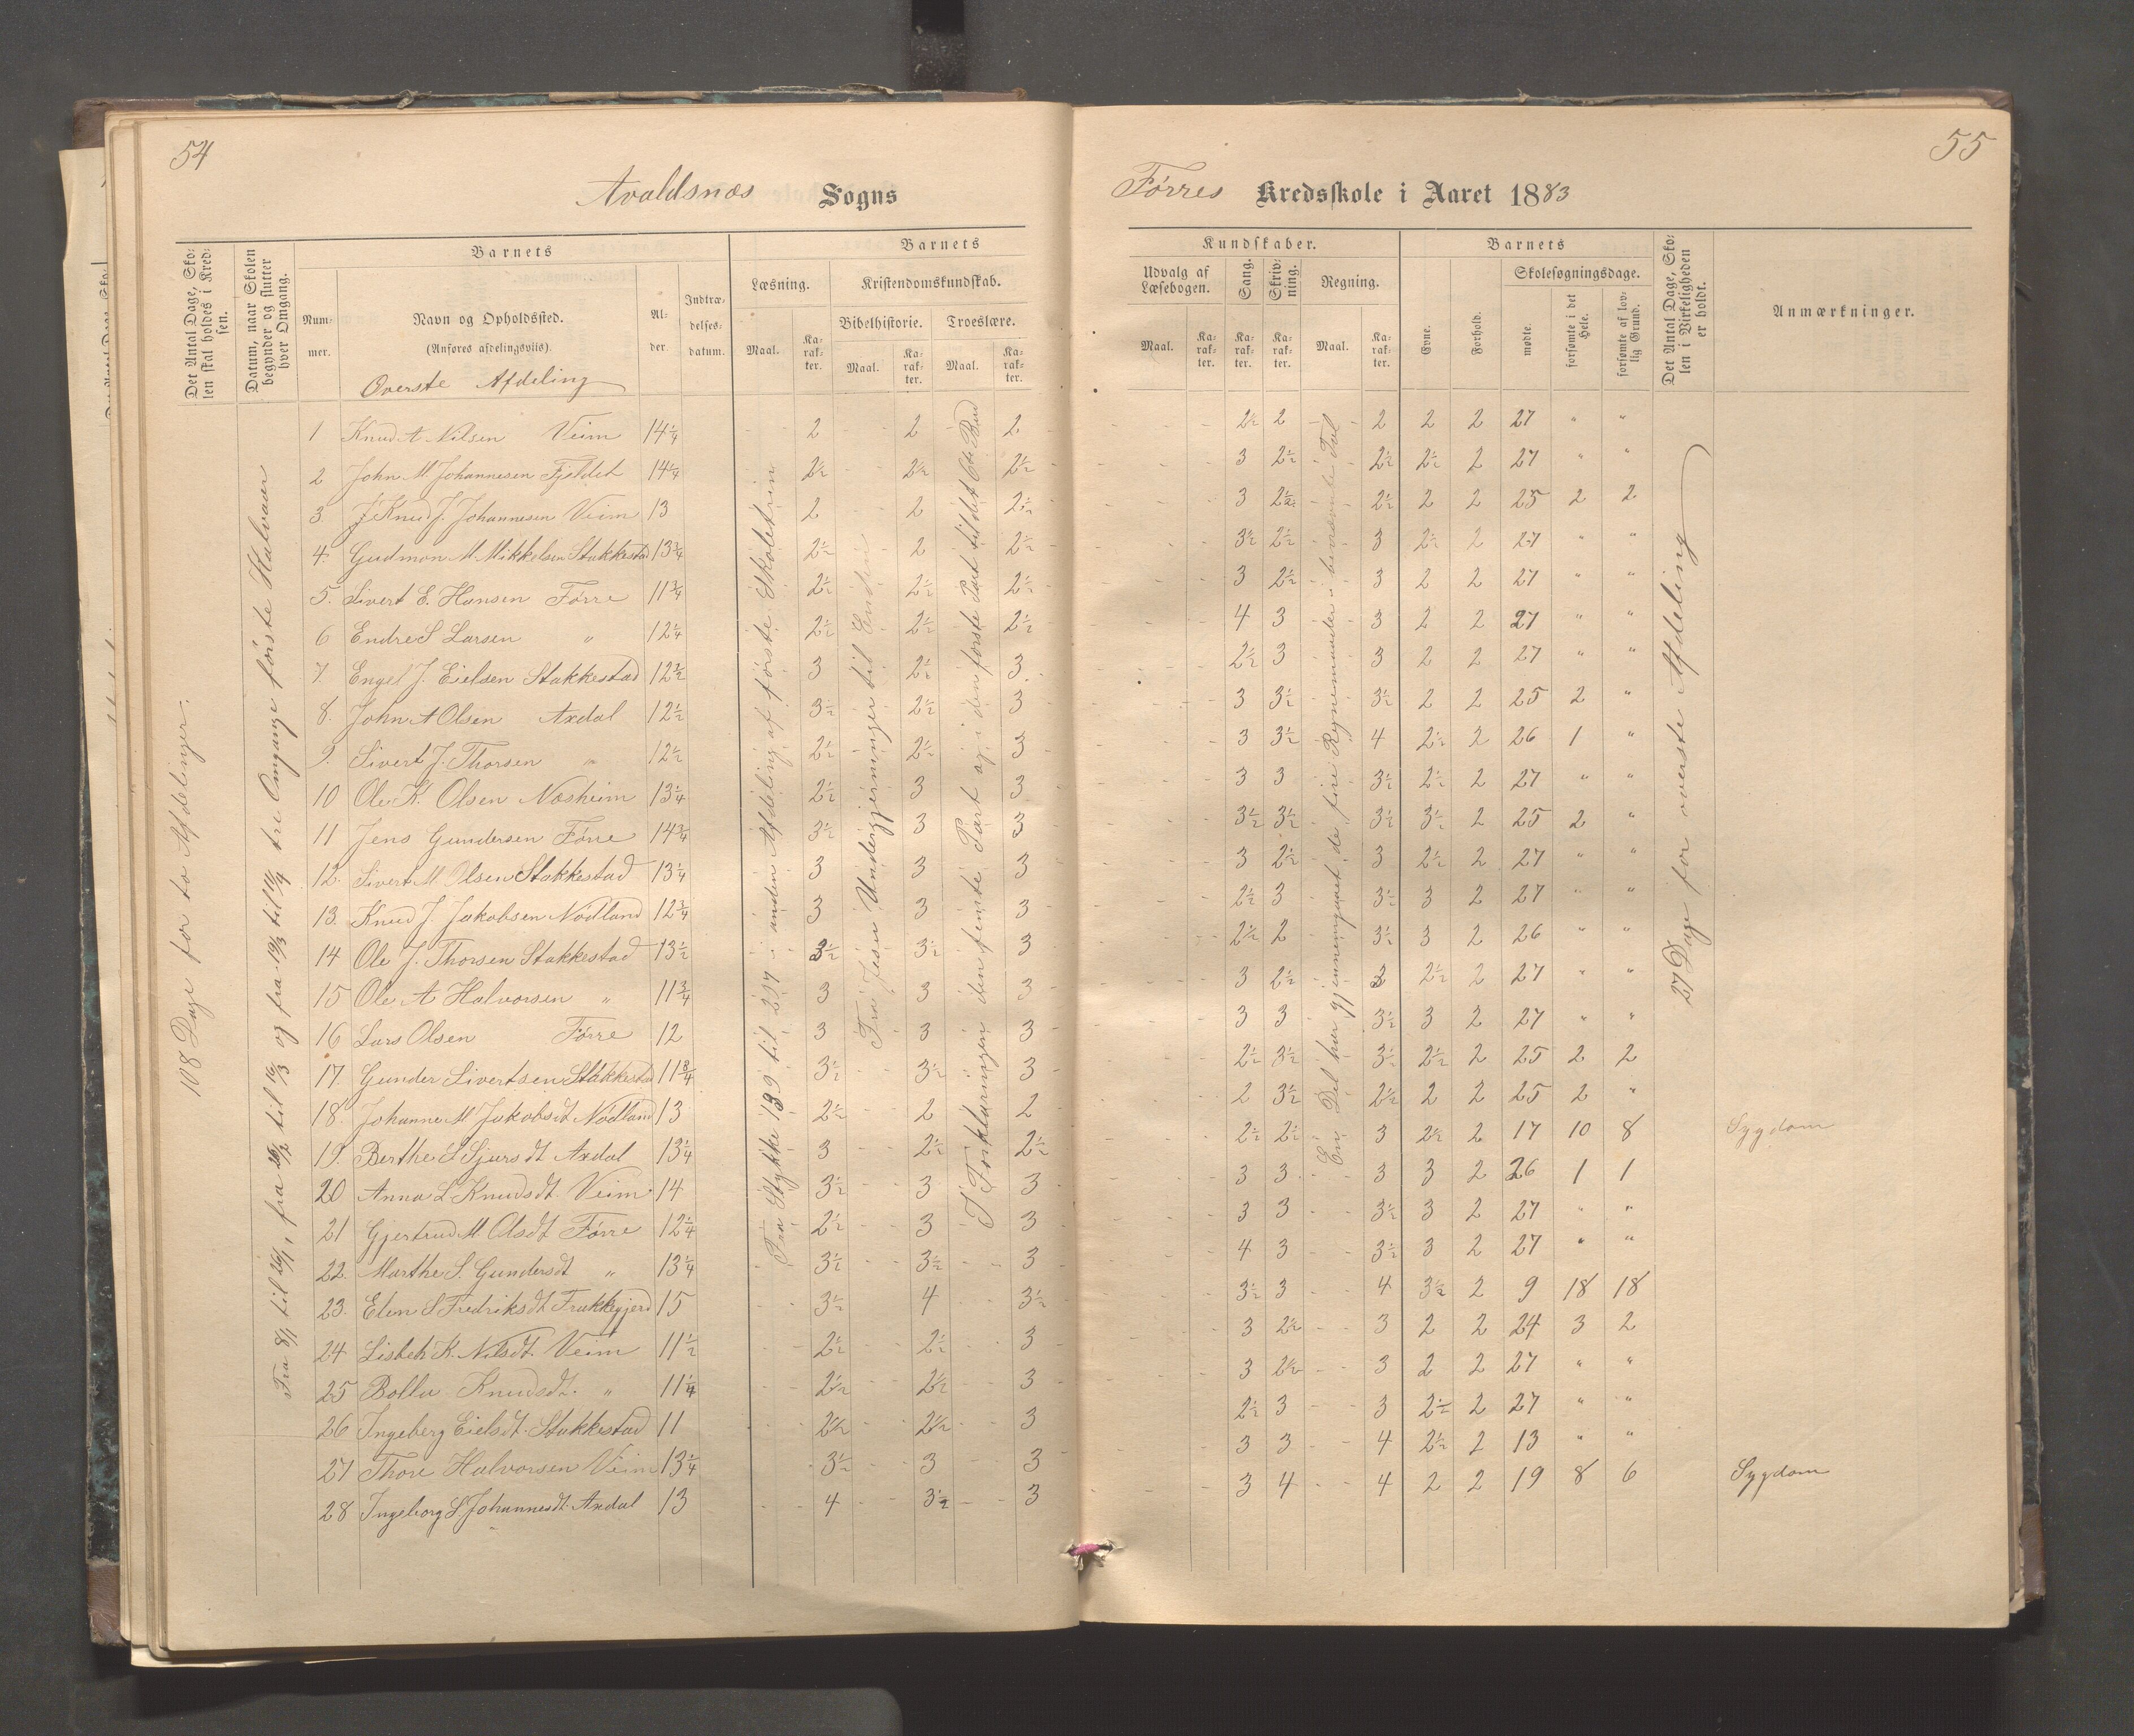 54
Avaldsnæs Sogns
Det Antal Dage, Skolen skal holdes i Kredsen.
Datum, naar Skolen begynder og slutter hver Omgang.
Barnets
Nummer.
Navn og Opholdssted.
(Anføres afdelingsviis).
Alder.
Indtrædelsesdatum.
Barnets
Læsning.
Kristendomskundskab.
Bibelhistorie.
Troeslære.
Maal.
Karakter.
Maal.
Karakter.
Maal.
Karakter.
Øverste Afdeling
108 Dage for to Afdelinger.
Fra 8/1 til 26/1, fra 26/2 til 16/3 og fra 19/3 til 11/4 tre Omgange første Halvaar
Fra Stykke 139 til 217 i anden Afdeling af første Skoletrin
Fra Jesu Undergjerninger til Enden
I Forklaringen den femte Part og i den første Part til det 6te Bud
1 Knud A Nilsen Veim 14 1/4 2 2 2
2 John M Johannesen Fjeldet 14 1/4 2 1/2 2 1/2 2 1/2
3 Knud J. Johannesen Veim 13 2 2 2 1/2
4. Gudmon M Mikkelsen Stakkestad 13 3/4 2 1/2 2 2 1/2
5. Sivert E. Hansen Førre 11 3/4 2 1/2 2 1/2 2 1/2
6 Endre S Larsen " 12 1/4 2 1/2 2 1/2 2 1/2
7. Engel J. Eielsen Stakkestad 12 1/2 3 2 1/2 3
8. John A Olsen Axdal 12 1/2 3 1/2 2 1/2 3
9. Sivert J. Thorsen " 12 1/2 2 1/2 2 1/2 3
10 Ole K. Olsen Nøsheim 13 1/4 2 1/2 3 3
11 Jens Gundersen Førre 14 3/4 3 1/2 3 3
12. Sivert M. Olsen Stakkestad 13 1/4 3 3 3
13. Knud J. Jakobsen Nodland 12 3/4 3 3 3
14 Ole J. Thorsen Stakkestad 13 1/2 3 1/2 3 1/2 3
15 Ole A Halvorsen " 11 3/4 3 3 3
16 Lars Olsen Førre 12 3 3 3
17. Gunder Sivertsen Stakkestad 11 3/4 3 1/2 3 1/2 3
18. Johanne M Jakobsdt Nødland 13 2 1/2 2 2
19. Berthe S Sjursdt Axdal 13 1/4 3 2 1/2 2 1/2
20 Anna L Knudsdt. Veim 14 3 1/2 3 3
21 Gjertrud M. Olsdt Førre 12 1/4 2 1/2 3 3
22. Marthe S. Gundersdt " 13 1/4 3 1/2 3 1/2 3
23. Elen S Fredriksdt 15 3 1/2 4 3 1/2
24 Lisbeth K. Nilsdt. Veim 11 1/2 2 1/2 2 1/2 3
25 Knudsdt. " 11 1/4 2 1/2 2 1/2 3
26 Ingeberg Eielsdt. Stakkestad 11 2 1/2 2 1/2 3
27 Thore Halvorsen Veim 13 1/4 3 1/2 3 3
28 Ingeborg S Johannesdt. Axdal 13 4 3 1/2 3
55
Førres Kredsskole i Aaret 1883
Kundskaber.
Udvalg af Læsebogen.
Sang.
Skrivning.
Regning.
Barnets
Skolesøgningsdage.
Maal.
Karakter.
Karakter.
Karakter.
Maal.
Karakter.
Evne.
Forhold.
mødte.
forsømte i det Hele.
forsømte af lovlig Grund.
Det Antal Dage, Skolen i Virkeligheden er holdt.
Anmærkninger.
En Del har gjennemgaaet de fire Regnemaader i benævnte Tal
27 Dage for øverste Afdeling
2 1/2 2 2 2 2 27 " "
3 2 1/2 2 1/2 2 1/2 2 27 " "
3 2 1/2 2 1/2 2 2 25 2 2
3 1/2 2 1/2 3 2 1/2 2 27 " "
3 2 1/2 3 2 2 27 " "
4 3 3 2 2 27 " "
2 1/2 3 3 2 2 27 " "
3 3 1/2 3 1/2 2 2 25 2 "
3 3 1/2 4 2 1/2 2 26 1 "
3 3 3 1/2 2 1/2 2 27 " "
3 1/2 3 1/2 3 1/2 3 1/2 2 25 2 "
3 2 1/2 3 2 1/2 2 27 " "
2 1/2 3 3 1/2 3 2 27 " "
2 1/2 2 3 1/2 3 2 26 " "
3 2 1/2 3 2 1/2 2 27 " "
3 3 3 1/2 3 2 27 " "
2 1/2 3 1/2 3 1/2 2 1/2 2 25 2 2
2 3 1/2 2 1/2 2 2 25 2 "
2 1/2 2 1/2 3 2 1/2 2 17 10 8 Sygdom
3 3 3 3 2 26 1 1
3 3 3 1/2 3 2 27 " "
4 3 3 1/2 3 2 27 " "
3 1/2 3 4 3 1/2 2 9 18 18
3 2 1/2 3 2 2 24 3 2
3 2 1/2 3 2 2 27 " "
2 1/2 3 3 2 1/2 2 27 " "
3 3 4 2 1/2 2 13 " "
3 4 4 2 2 19 8 6 Sygdom